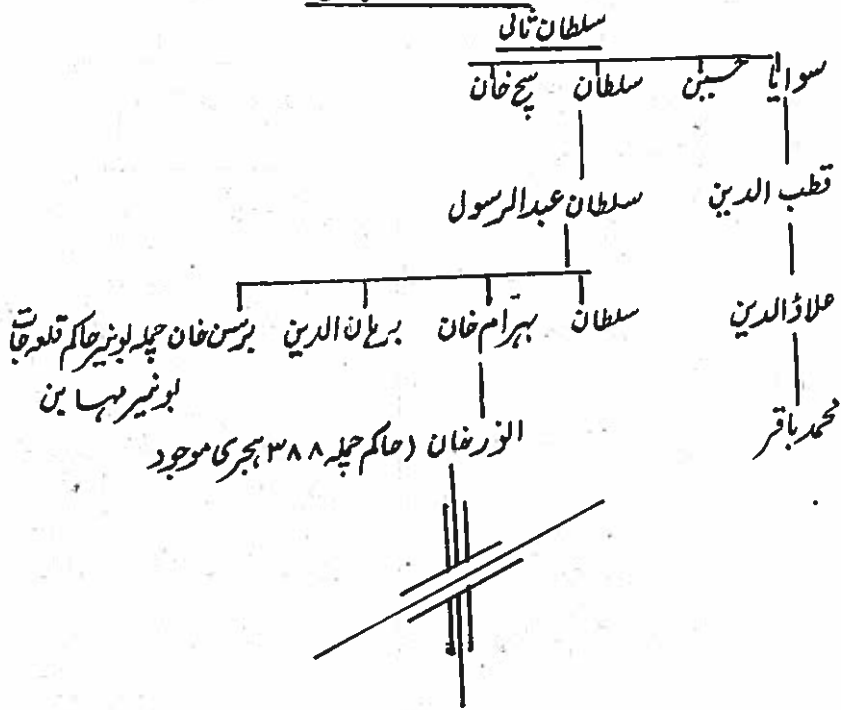 سلطان تالی
سوایا حسین سلطان سیح خان
قطب الدین سلطان عبدالرسول
علاؤالدین سلطان بہرام خان برہان الدین برسن خان چملہ بونیر حاکم قلعہ جات
بونیر
محمد باقر
انور خان (حاکم چملہ ۳۸۸ ہجری موجود